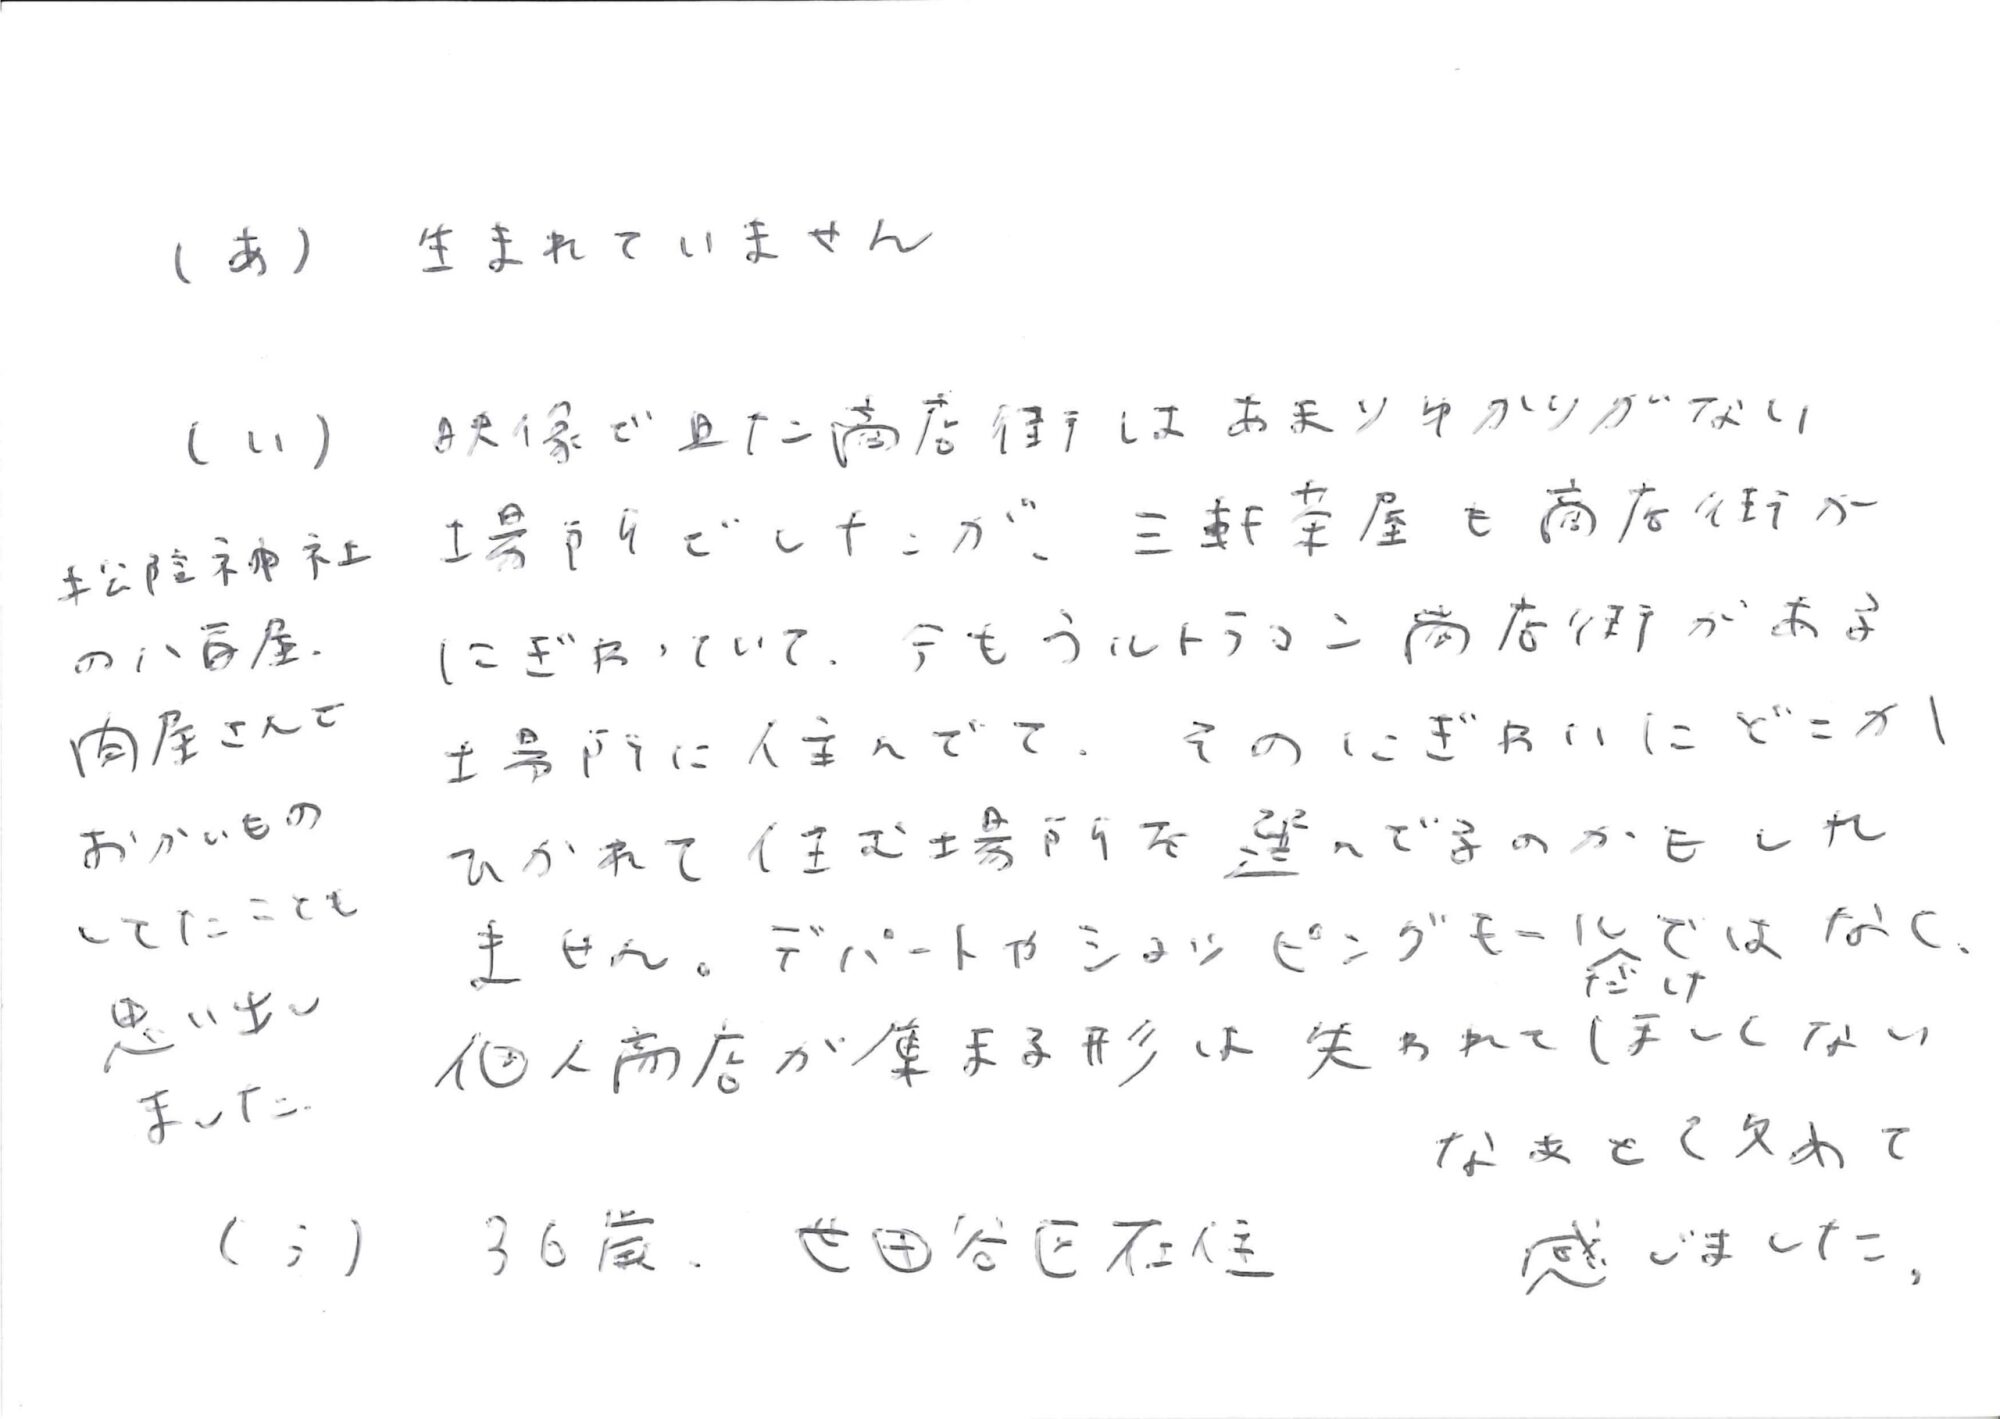 (あ) 生まれていません
(い) 映像で見た商店街はあまりゆかりがない
場所でしたが、三軒茶屋も商店街が
にぎわっていて、今もウルトラマン商店街がある
場所に住んでて、そのにぎわいにどこかし
ひかれて住む場所を選んでるのかもしれ
ません。デパートやショッピングモールだけではなく、
個人商店が集まる形は失われてほしくない
なぁと改めて
感じました。
松陰神社
の八百屋、
肉屋さんで
おかいもの
してたことも
思い出し
ました。
(う) 36歳、世田谷区在住